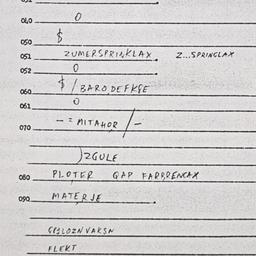 040 0
$
050
051 ZUMERSPRINKLAX Z...SPRINGLAX
052 0
060 $ / BARO,DEFKSE
061 0
070 - = MITAHOR /-
)ZGULE
080 PLOTER GAP FARDRENCAX
090 MATERJE
GOSLOZNVAKSN
FLEKT